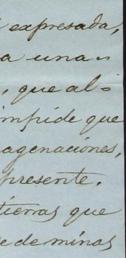 expresada,
a una
, que al=
impide que
agenaciones,
presente.
tierras que
de minas